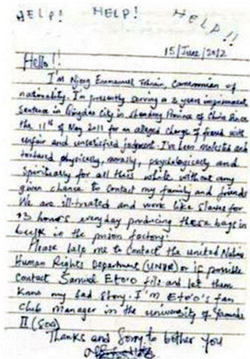 HELP! HELP! HELP!!
15/June/2012
Hello!!
I'm Njong Emmanuel Tohnain, Cameroonian of
nationality. I'm presently serving a 3 years imprisonment
sentence in Qingdao City in Shandong Province of China since
the 11th of May 2011 for an alleged charge of fraud with
unfair and unsatisfied judgment. I've been molested and
tortured physically, morally, psychologically and
spiritually for all this while without any
given chance to contact my family and friends
We are ill-treated and work like slaves for
13 hours everyday producing these bags in
bulk in the prison factory.
Please help me to contact the united Nations
Human Rights Department (UNHR) or if possible
contact Samuel Eto'o fils and let them
know my sad story. I'm Eto'o's fan
club manager in the university of Yaounde
II (Soa)
Thanks and Sorry to bother you